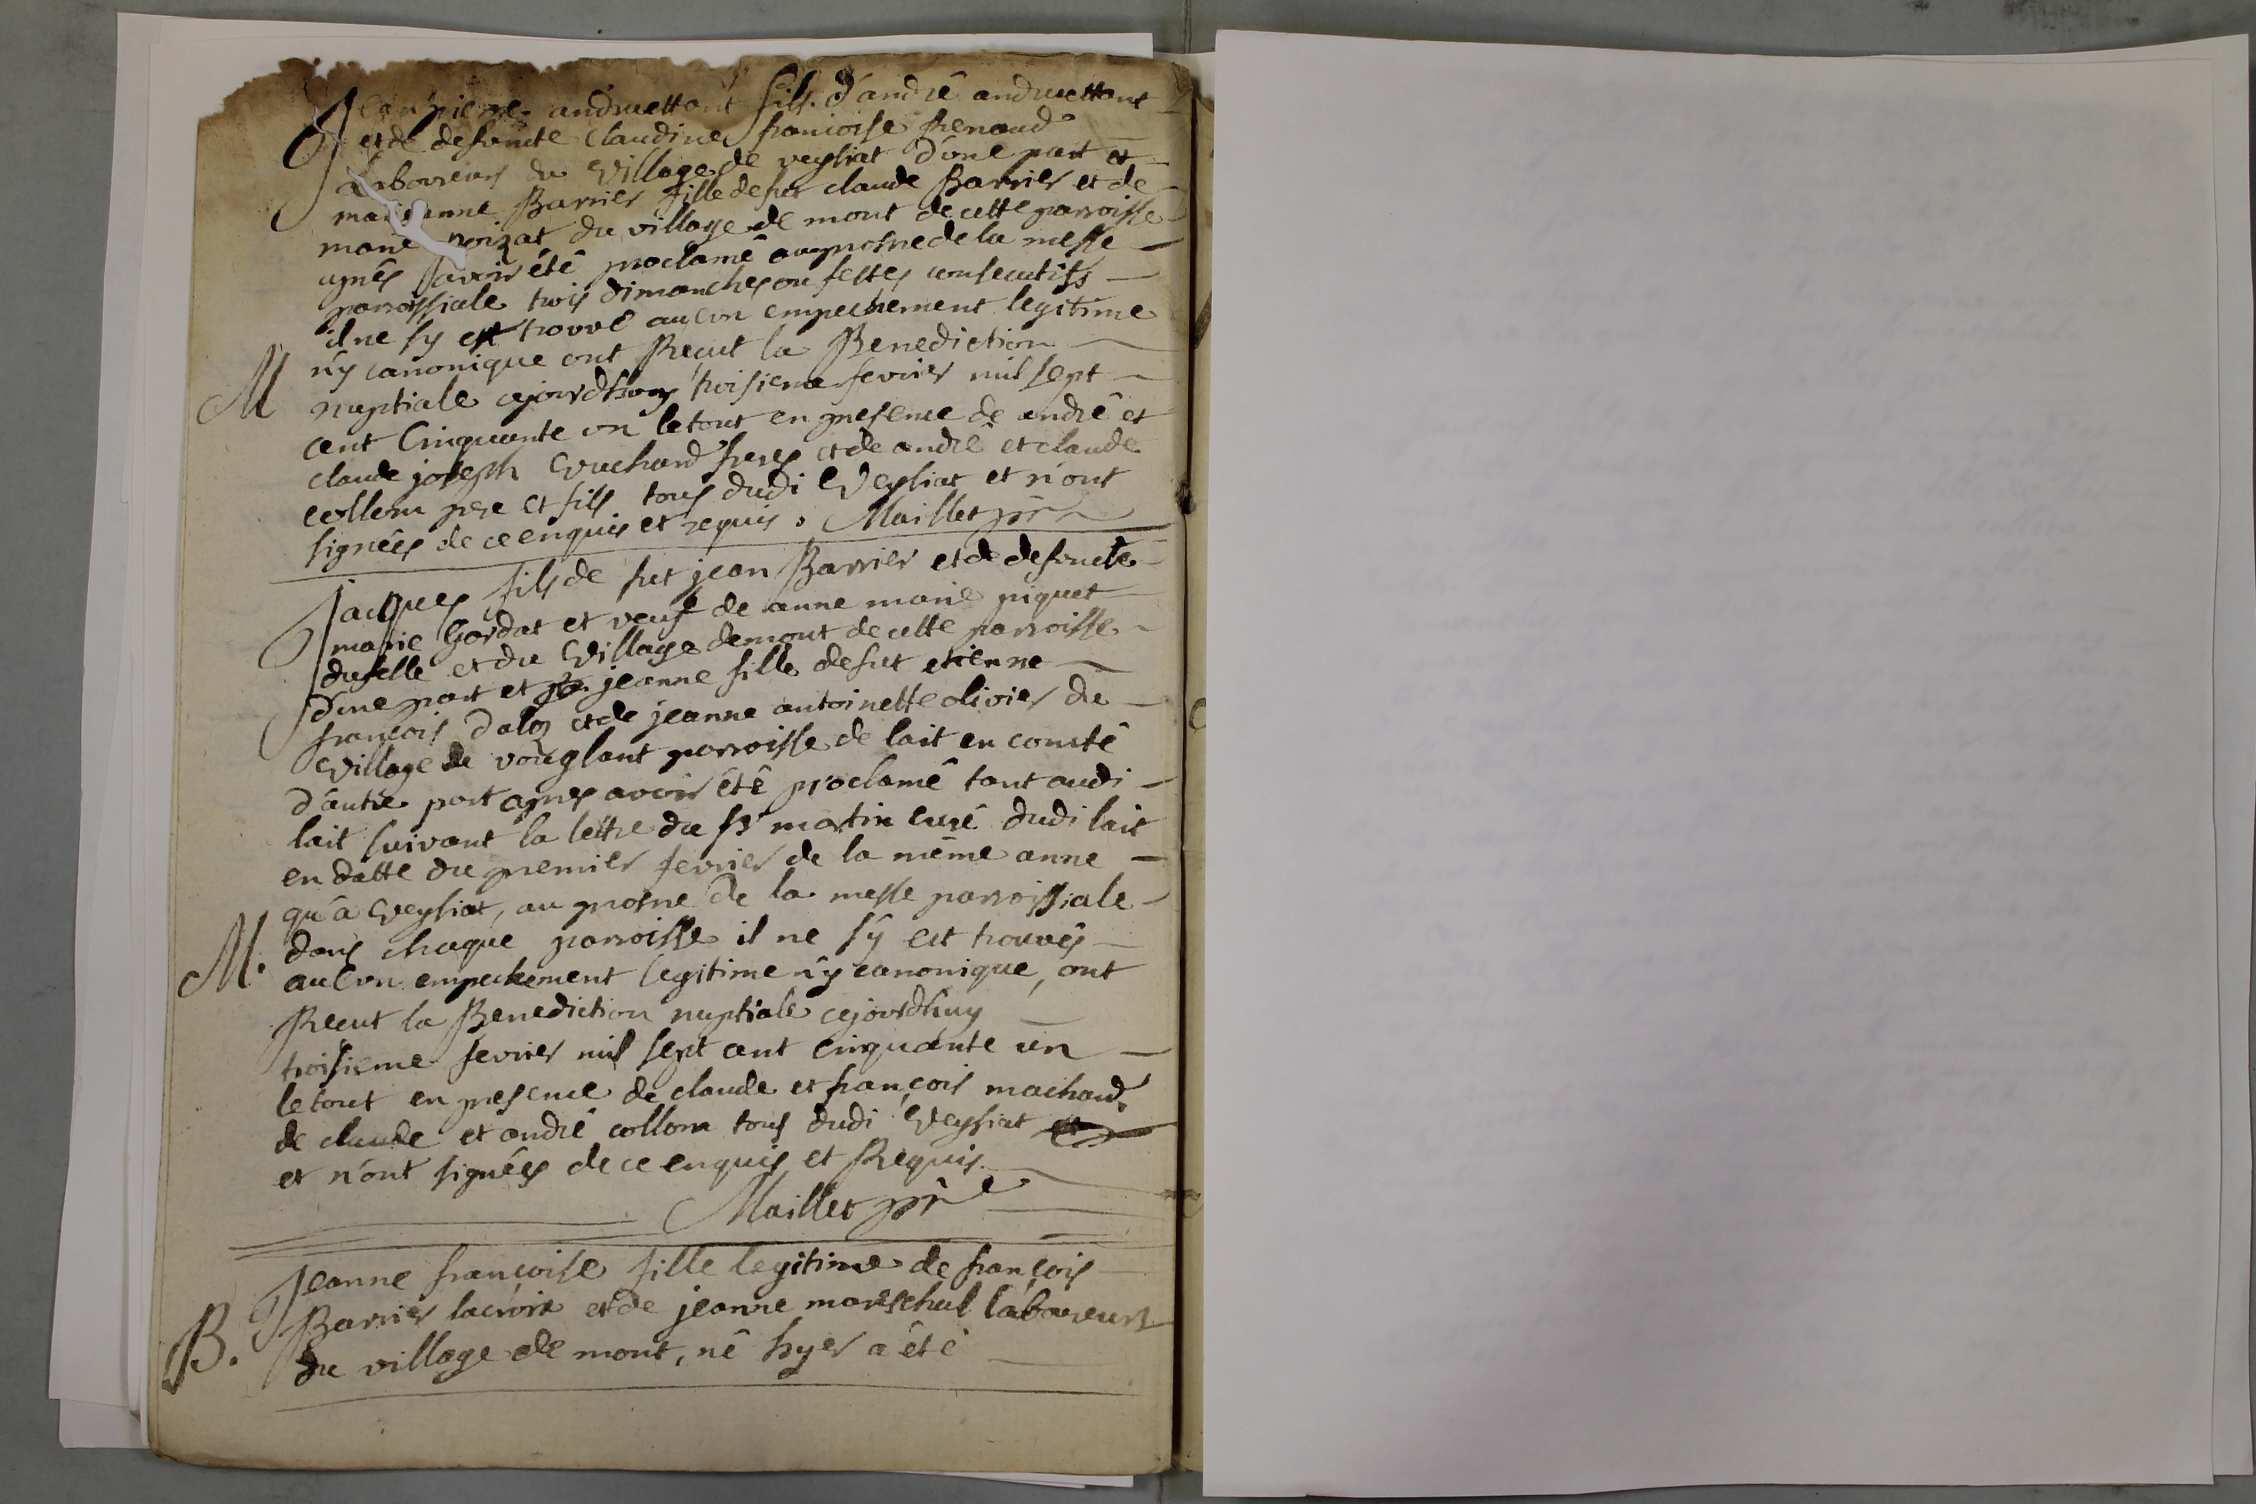 Jean pierre andruettant fils d'andrê andruettant
et de defuncte Claudine francoise Renaud
laboureurs du Village de veysiat d'une part et
marianne Barrier fille de fut claude Barrier et de
marie noizat du village de mont de cette parroisse
apres avoir étê proclamê au prosne de la messe
parroissiale trois dimanches ou festes consecutifs
il ne s'y est trouvê aucun empechement legitime
M
n'y canonique ont Reçut la Benediction
nuptiale cejourd'huy troisieme fevrier mil sept
cent Cinquante un le tout en presence de andrê et
claude joseph Vuchard freres et de andrê et claude
collom pere et fils tous dudi Veysiat et n'ont
signêes de ce enquis et requis. Maillet ptre
Jacques fils de fut jean Barrier et de defuncte
marie Gordat et veuf de anne marie piquet
duselle et du Village de mont de cette parroisse
d'une part et jeanne fille de fut etienne
françois daloz et de jeanne antoinette olivier du
Village de vouglant parroisse de lait en comtê
d'autre part apres avoir êtê proclamê tant audi
lait suivant la lettre du sr martin curê dudi lait
en datte du premier fevrier de la même anne
qu'a Veysiat, au prosne de la messe parroissiale
M.
dans chaque parroisse il ne s'y est trouvês
aucun empechement legitime n'y canonique, ont
Recut la Benediction nuptiale cejourdhuy
troisieme fevrier mil sept cent cinquante un
le tout en presence de claude et françois machard
de claude et andrê collom tous dudi Veysiat et
et n'ont signêes de ce enquis et Requis.
Maillet ptre
Jeanne françoise fille legitime de françois
Barrier lacroix et de jeanne mareschal laboureurs
B.
du village de mont, nê hyer a êtê